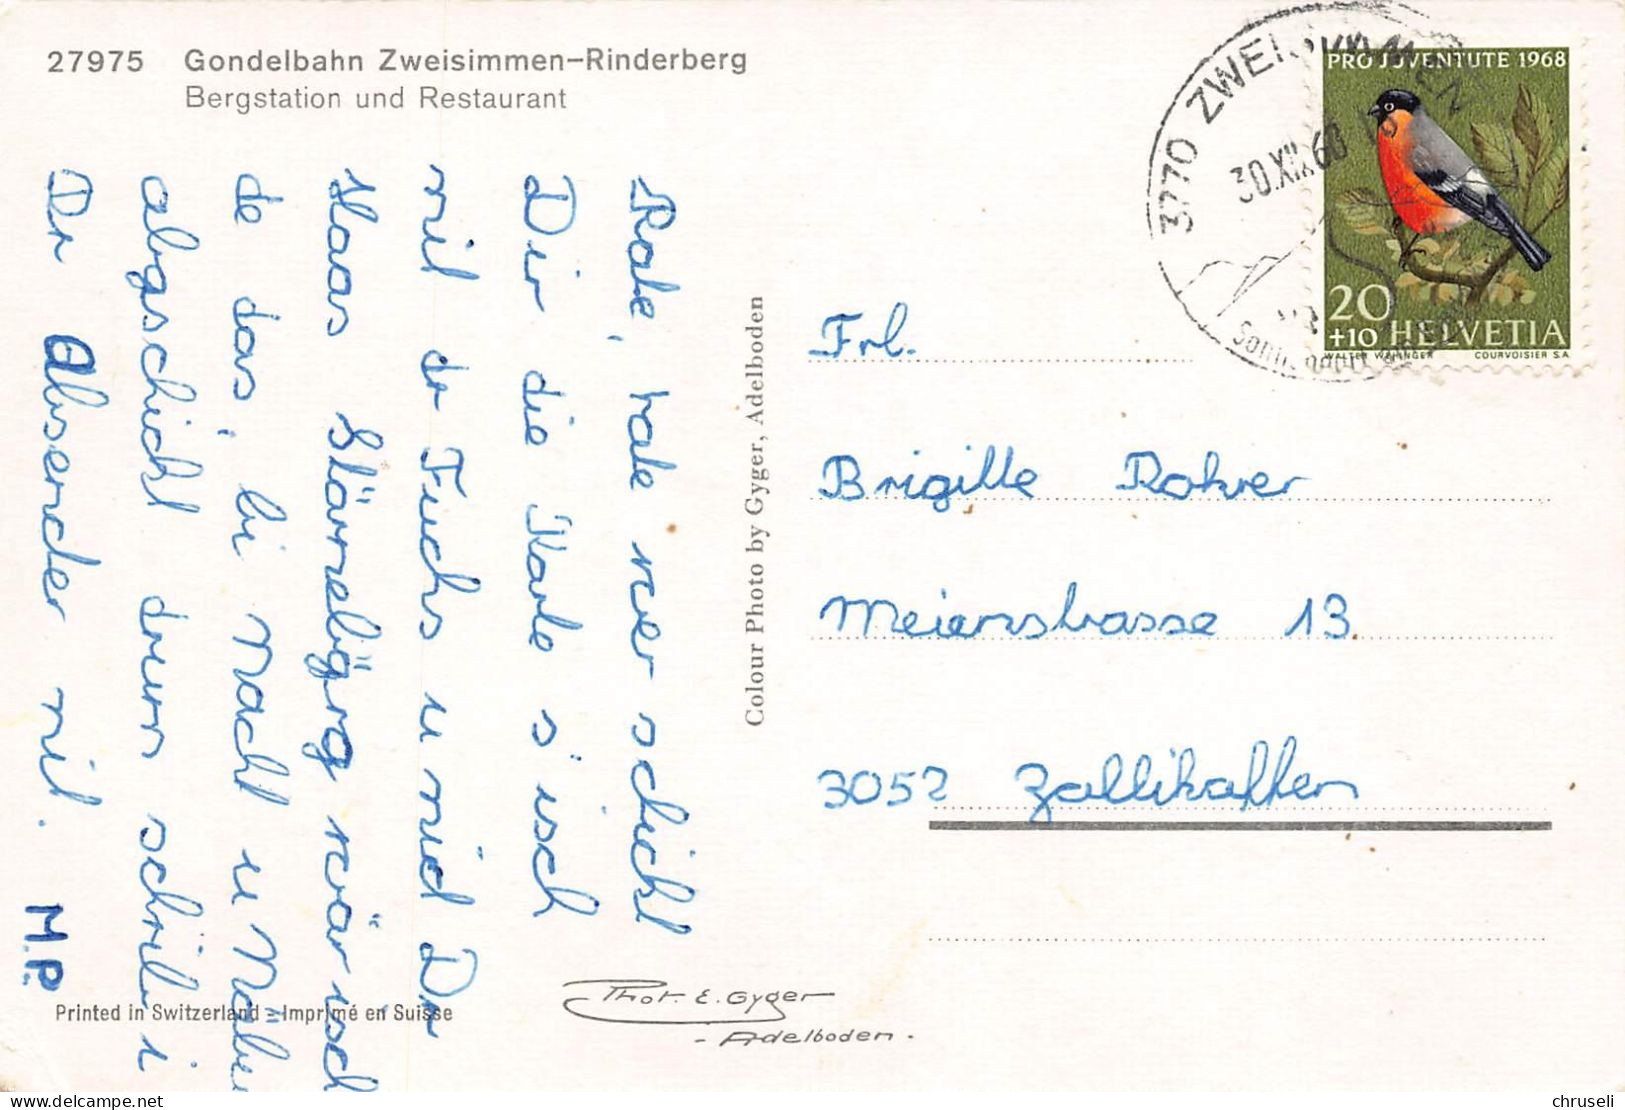 27975 Gondelbahn Zweisimmen-Rinderberg
Bergstation und Restaurant
Rate, rate wer schickt
Dir die Karte s'isch
nit dr Fuchs u nid Dr
Haas Stärnebärg wär isch
de das, bi Nacht u Näbu
abgschickt drum schribi
Dr Absender nit. M.P.
Colour Photo by Gyger, Adelboden
3770 ZWEISIMMEN
30.XII.68
PRO JUVENTUTE 1968
20
+10 HELVETIA
COURVOISIER S.A.
Frl.
Brigitte Rohrer
Meienstrasse 13
3052 Zollikoffen
Printed in Switzerland – Imprimé en Suisse
Phot. E. Gyger
- Adelboden.
chruseli